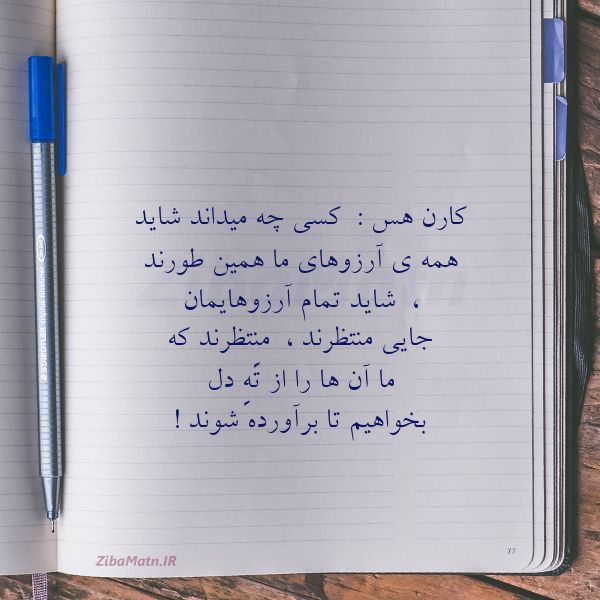 کارن هس :  کسی چه میداند شاید
همه ی آرزوهای ما همین طورند
،  شاید تمام آرزوهایمان
جایی منتظرند ،  منتظرند که
ما آن ها را از تَهِ دل
بخواهیم تا برآورده َشوند !
ZibaMatn.IR
77